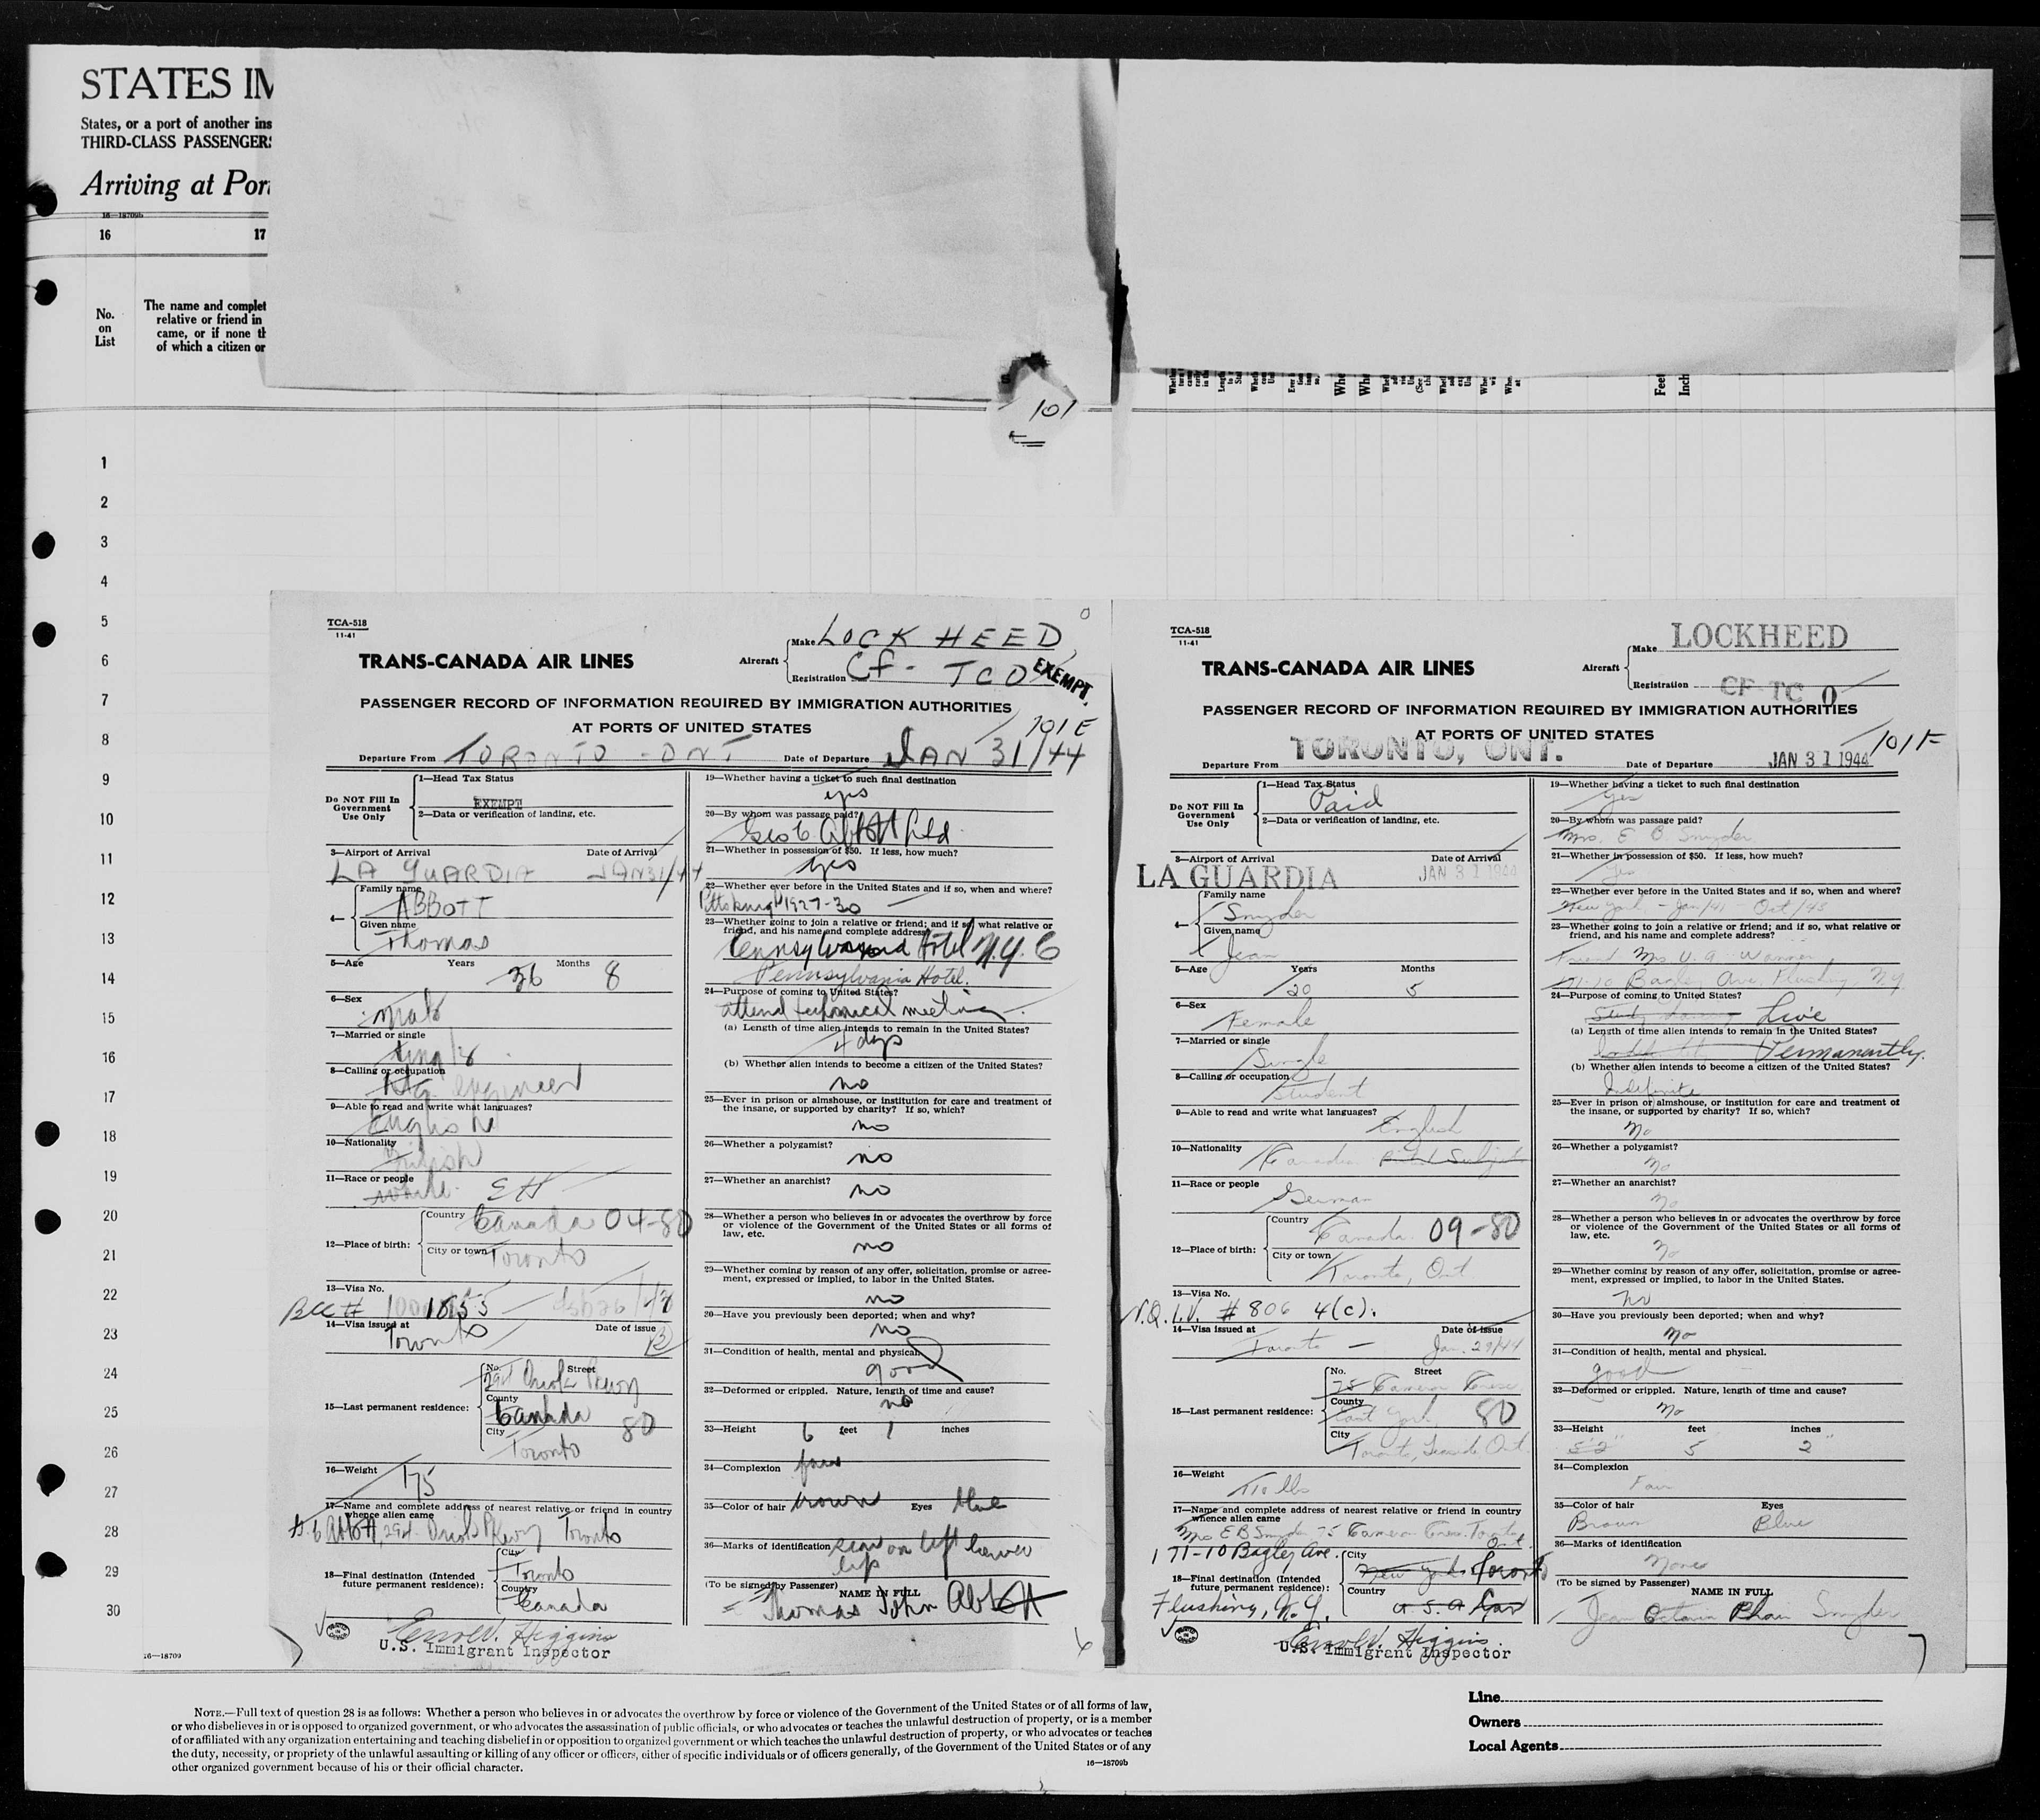 STATES IM
States, or a port of another ins
THIRD-CLASS PASSENGERS
Arriving at Por
16—18709b
16 17
No. on List
The name and complet
relative or friend in
came, or if none th
of which a citizen or
Feet
Inch
101
1
2
3
4
5
6
7
8
9
10
11
12
13
14
15
16
17
18
19
20
21
22
23
24
25
26
27
28
29
30
16—18709
TCA-518
11-41
TRANS-CANADA AIR LINES
Aircraft
Make LOCKHEED
Registration CF- TCO
EXEMPT.
PASSENGER RECORD OF INFORMATION REQUIRED BY IMMIGRATION AUTHORITIES
AT PORTS OF UNITED STATES
101 E
Departure From TORONTO - ONT Date of Departure JAN 31/44
Do NOT Fill In Government Use Only
1—Head Tax Status
EXEMPT
2—Data or verification of landing, etc.
3—Airport of Arrival Date of Arrival
LA GUARDIA JAN 31/44
4— Family name
ABBOTT
Given name
Thomas
5—Age Years 36 Months 8
6—Sex
Male
7—Married or single
single
8—Calling or occupation
engineer
9—Able to read and write what languages?
English
10—Nationality
British
11—Race or people
White EH
12—Place of birth: Country Canada 04-80
City or town Toronto
13—Visa No.
BCC #
14—Visa issued at Date of issue
Toronto
15—Last permanent residence: No. Street
County
Canada 80
City
Toronto
16—Weight
175
17—Name and complete address of nearest relative or friend in country
whence alien came
Toronto
18—Final destination (Intended
future permanent residence):
City
Toronto
Country
Canada
Higgins
U.S. Immigrant Inspector
19—Whether having a ticket to such final destination
yes
20—By whom was passage paid?
Geo C Abbott Ltd
21—Whether in possession of $50. If less, how much?
yes
22—Whether ever before in the United States and if so, when and where?
Pittsburgh 1927-30
23—Whether going to join a relative or friend; and if so, what relative or
friend, and his name and complete address?
Hotel N.Y.C
Pennsylvania Hotel.
24—Purpose of coming to United States?
attend technical meeting
(a) Length of time alien intends to remain in the United States?
4 days
(b) Whether alien intends to become a citizen of the United States?
no
25—Ever in prison or almshouse, or institution for care and treatment of
the insane, or supported by charity? If so, which?
no
26—Whether a polygamist?
no
27—Whether an anarchist?
no
28—Whether a person who believes in or advocates the overthrow by force
or violence of the Government of the United States or all forms of
law, etc.
no
29—Whether coming by reason of any offer, solicitation, promise or agree-
ment, expressed or implied, to labor in the United States.
no
30—Have you previously been deported; when and why?
no
31—Condition of health, mental and physical.
good
32—Deformed or crippled. Nature, length of time and cause?
no
33—Height 6 feet 1 inches
34—Complexion
35—Color of hair brown Eyes blue
36—Marks of identification scar on left lower
lip
(To be signed by Passenger) NAME IN FULL
Thomas John Abbott
TCA-518
11-41
TRANS-CANADA AIR LINES
Aircraft
Make LOCKHEED
Registration CF-TC O
PASSENGER RECORD OF INFORMATION REQUIRED BY IMMIGRATION AUTHORITIES
AT PORTS OF UNITED STATES
101 F
Departure From TORONTO, ONT. Date of Departure JAN 31 1944
Do NOT Fill In Government Use Only
1—Head Tax Status
Paid
2—Data or verification of landing, etc.
3—Airport of Arrival Date of Arrival
LA GUARDIA JAN 31 1944
4— Family name
Snyder
Given name
Jean
5—Age Years 20 Months 5
6—Sex
Female
7—Married or single
Single
8—Calling or occupation
Student
9—Able to read and write what languages?
English
10—Nationality
Canadian British Subject
11—Race or people
German
12—Place of birth: Country Canada 09-80
City or town Toronto, Ont
13—Visa No.
N.Q.I.V. # 806 4(c).
14—Visa issued at Date of issue
Toronto — Jan. 29/44
15—Last permanent residence: No. Street
75 Cameron Cresc
County
East York 80
City
Toronto, Leaside, Ont.
16—Weight
110 lbs
17—Name and complete address of nearest relative or friend in country
whence alien came
Mrs E B Snyder 75 Cameron Cres. Toronto Ont
171-10 Bagley Ave.
18—Final destination (Intended
future permanent residence):
City
New York Toronto
Country
U.S.A Can
Flushing, N.Y.
Higgins
U.S. Immigrant Inspector
19—Whether having a ticket to such final destination
Yes
20—By whom was passage paid?
Mrs. E B. Snyder
21—Whether in possession of $50. If less, how much?
Yes
22—Whether ever before in the United States and if so, when and where?
New York - Jan/41 - Oct/43
23—Whether going to join a relative or friend; and if so, what relative or
friend, and his name and complete address?
Friend Mrs V. A. Wanner
171-10 Bagley Ave. Flushing N.Y.
24—Purpose of coming to United States?
Study Live
(a) Length of time alien intends to remain in the United States?
Permanently.
(b) Whether alien intends to become a citizen of the United States?
Indefinite
25—Ever in prison or almshouse, or institution for care and treatment of
the insane, or supported by charity? If so, which?
no
26—Whether a polygamist?
no
27—Whether an anarchist?
no
28—Whether a person who believes in or advocates the overthrow by force
or violence of the Government of the United States or all forms of
law, etc.
no
29—Whether coming by reason of any offer, solicitation, promise or agree-
ment, expressed or implied, to labor in the United States.
no
30—Have you previously been deported; when and why?
no
31—Condition of health, mental and physical.
good
32—Deformed or crippled. Nature, length of time and cause?
no
33—Height 5'2" feet 5 inches 2"
34—Complexion
Fair
35—Color of hair Eyes
Brown Blue
36—Marks of identification
None
(To be signed by Passenger) NAME IN FULL
Jean Snyder
7
NOTE.—Full text of question 28 is as follows: Whether a person who believes in or advocates the overthrow by force or violence of the Government of the United States or of all forms of law,
or who disbelieves in or is opposed to organized government, or who advocates the assassination of public officials, or who advocates or teaches the unlawful destruction of property, or is a member
of or affiliated with any organization entertaining and teaching disbelief in or opposition to organized government or which teaches the unlawful destruction of property, or who advocates or teaches
the duty, necessity, or propriety of the unlawful assaulting or killing of any officer or officers, either of specific individuals or of officers generally, of the Government of the United States or of any
other organized government because of his or their official character.
16—18709b
Line
Owners
Local Agents